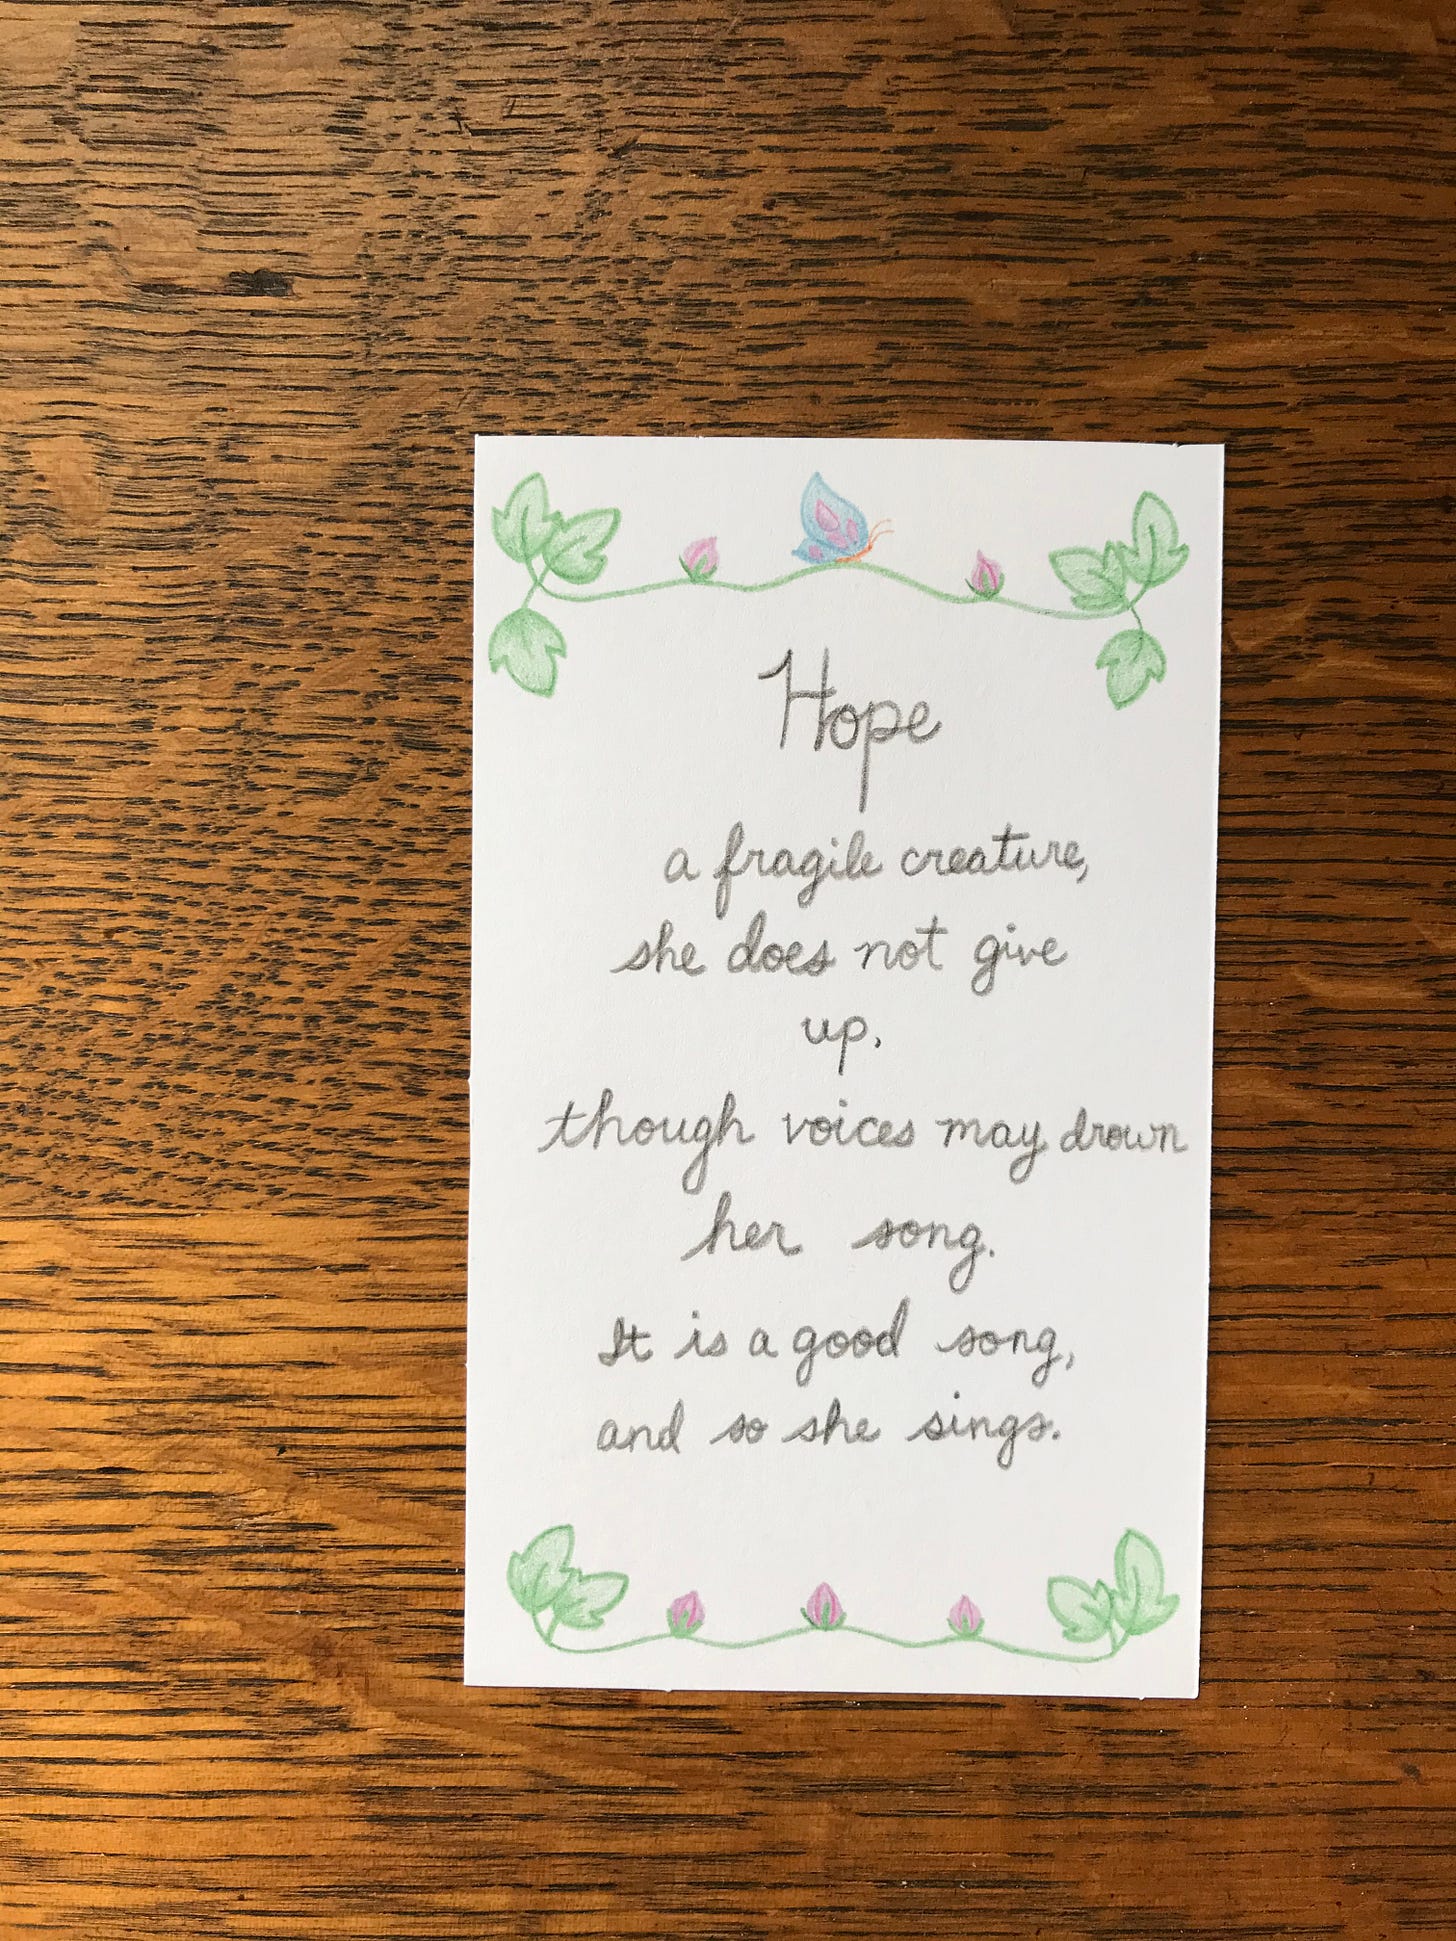 Hope
a fragile creature,
she does not give
up,
though voices may drown
her song.
It is a good song,
and so she sings.